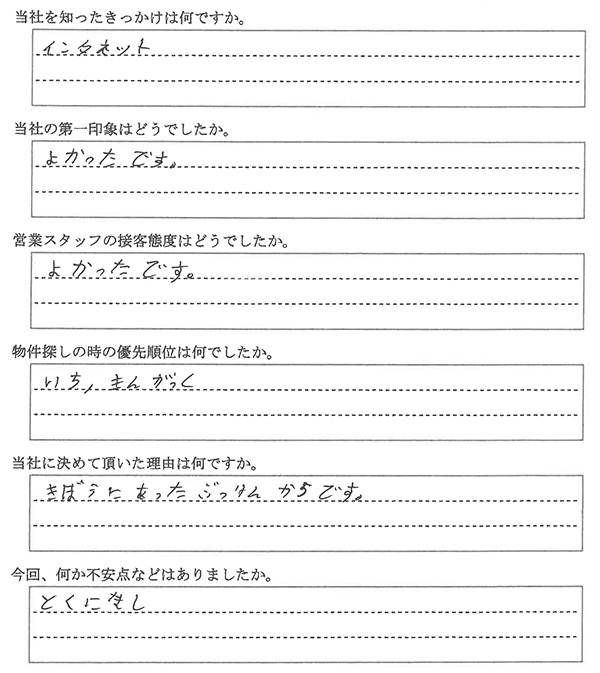 当社を知ったきっかけは何ですか。
インタネット
当社の第一印象はどうでしたか。
よかったです。
営業スタッフの接客態度はどうでしたか。
よかったです。
物件探しの時の優先順位は何でしたか。
いち, きんがっく
当社に決めて頂いた理由は何ですか。
きぼうにあったぶっけんからです。
今回、何か不安点などはありましたか。
とくになし